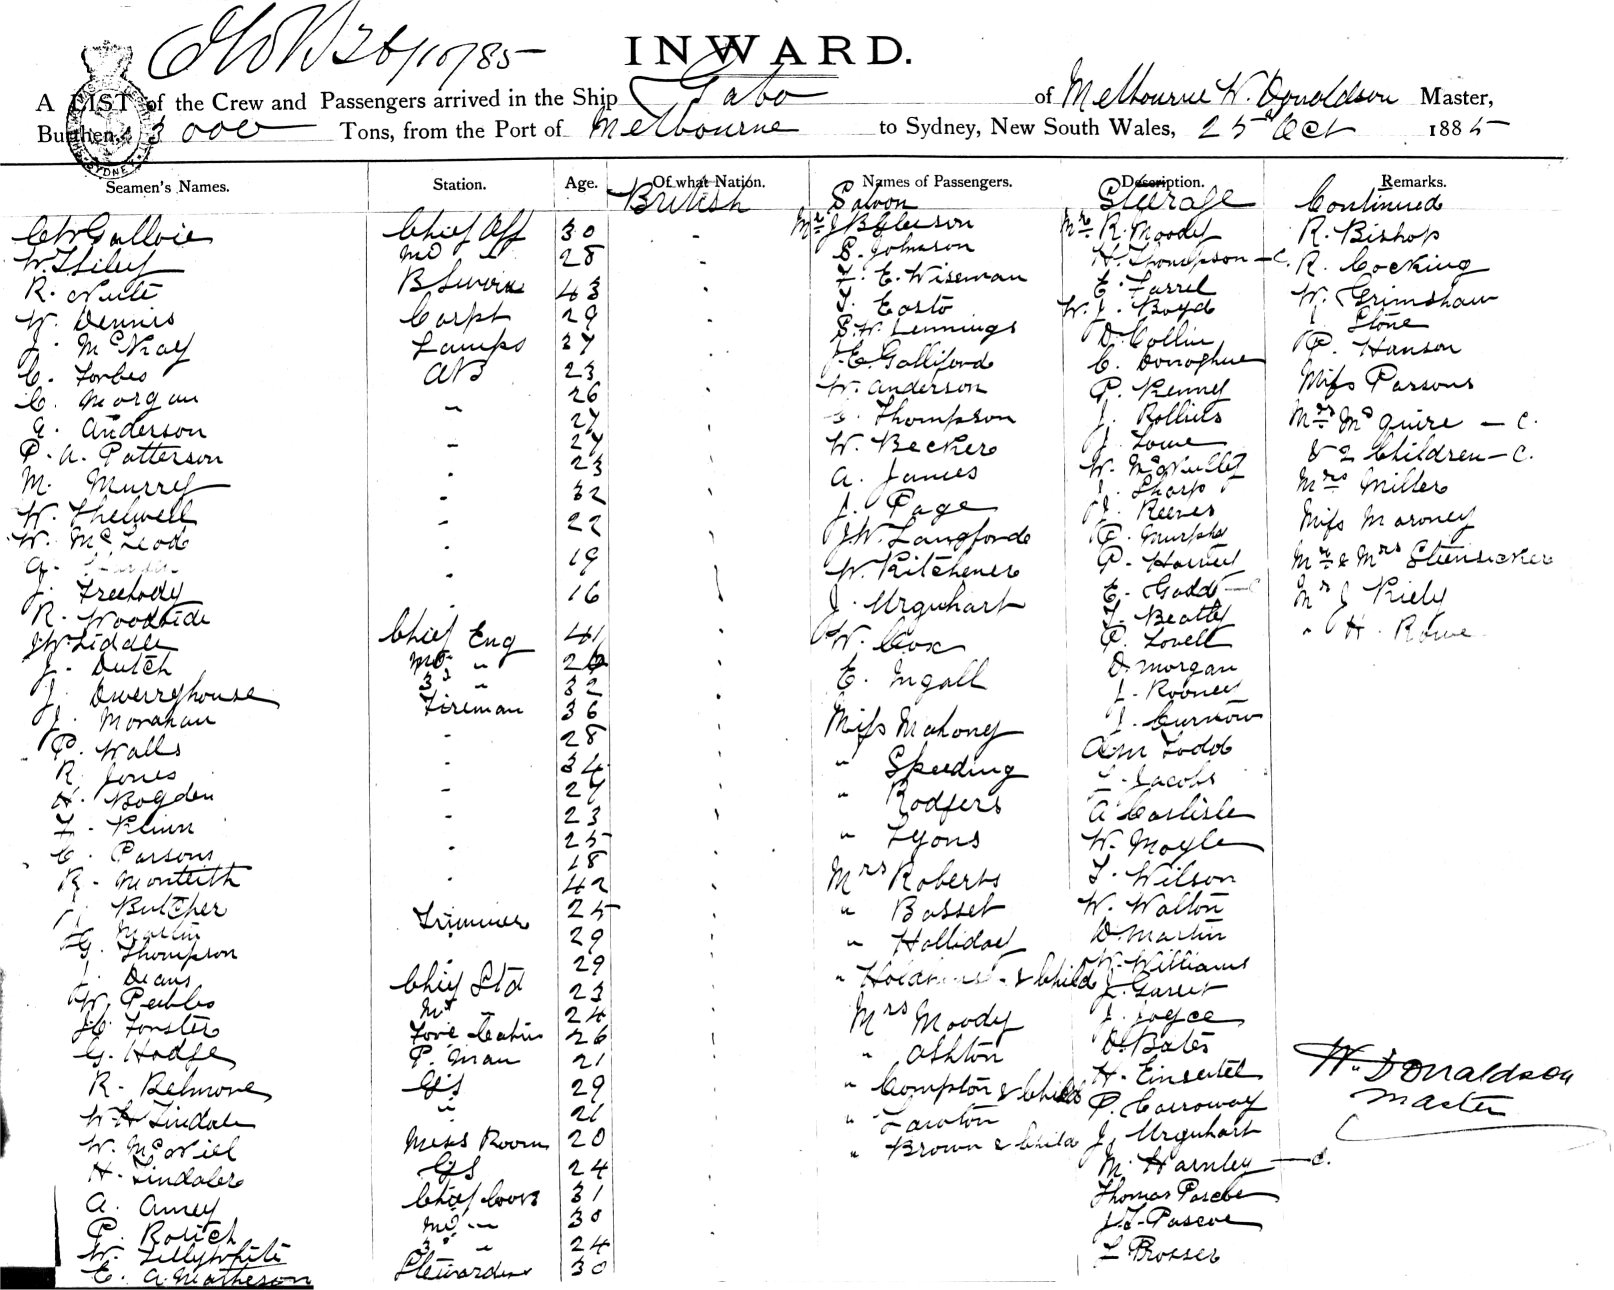 26/10/85
INWARD.
A LIST of the Crew and Passengers arrived in the Ship Gabo of Melbourne W. Donaldson Master,
Burthen 3000 Tons, from the Port of Melbourne to Sydney, New South Wales, 25th Oct 1885
Seamen's Names. Station. Age. Of what Nation. Names of Passengers. Description. Remarks.
British Saloon Steerage Continued
Chief Off 30
28
R. 43
W. Dennis Carpt 29
J. McKay Lamps 37
C. Forbes AB 23
C. Morgan 26
A. Anderson 27
P. A. Patterson 27
M. Murrey 23
W. Thelwell 32
W. McLeod 22
19
J. Freebody 16
R. Woodside
J W Liddell Chief Eng 41
J. Dutch
J. Dwerryhouse 3d " 32
J. Monahan Fireman 36
P. Walls 28
R. Jones 34
H. Bogden 27
F. 23
C. Parsons 25
R. Monteith 18
Butcher 42
Martin Trimmer 25
G. Thompson 29
J. Deans 29
W. Peebles Chief Std 23
J C. Forster 24
G. Hodge Fore Cabin 26
R. Belmore P. Man 21
W H Tindale GS 29
W. McNiel " 21
H. Tindaler Mess Room 20
A. Amey GS 24
P. Chief Cook 31
W. Lillywhite 30
E. A. Matheson 3d " 24
Stewardess 30
Mr J B Gleeson
S. Johnson
F. E. Wiseman
T. Easto
S. W. Lennings
J. E. Galliford
W. Anderson
G. Thompson
W. Becker
A. James
J. Page
J. W. Langford
W. Kitchener
J. Urquhart
W. Cox
E. Ingall
Miss Mahoney
" Speeding
" Rodgers
" Lyons
Mrs Roberts
" Basset
" Holliday
" & Child
Mrs Moody
" Ashton
" Compton & Child
" Lawton
" Brown & Child
Mr R. Moody
H. Thompson — C.
E. Farrel
W. J. Boyd
D. Collin
C. Donoghue
P. Kenney
J. Rollins
J. Lowe
W. McNulty
J. Sharp
J. Reeves
P. Murphy
P.
E. Gadd — C
T. Beatty
P. Lovell
D. Morgan
J. Rooney
J. Curnow
A M Todd
L. Jacobs
A Carlisle
W. Moyle
T. Wilson
W. Walton
D. Martin
W. Williams
J. Joyce
D. Bates
H.
P. Carroway
J. Urquhart
M. Harnley — C.
Thomas Pascoe
J. T. Pascoe
L Prosser
R. Bishop
R. Cocking
W. Grimshaw
J Stone
P. Hanson
Miss Parsons
Mrs McGuire — C.
& 2 Children — C.
Mrs Miller
Miss Maroney
Mr & Mrs
Mr J Kiely
" H. Rowe
W. Donaldson
Master